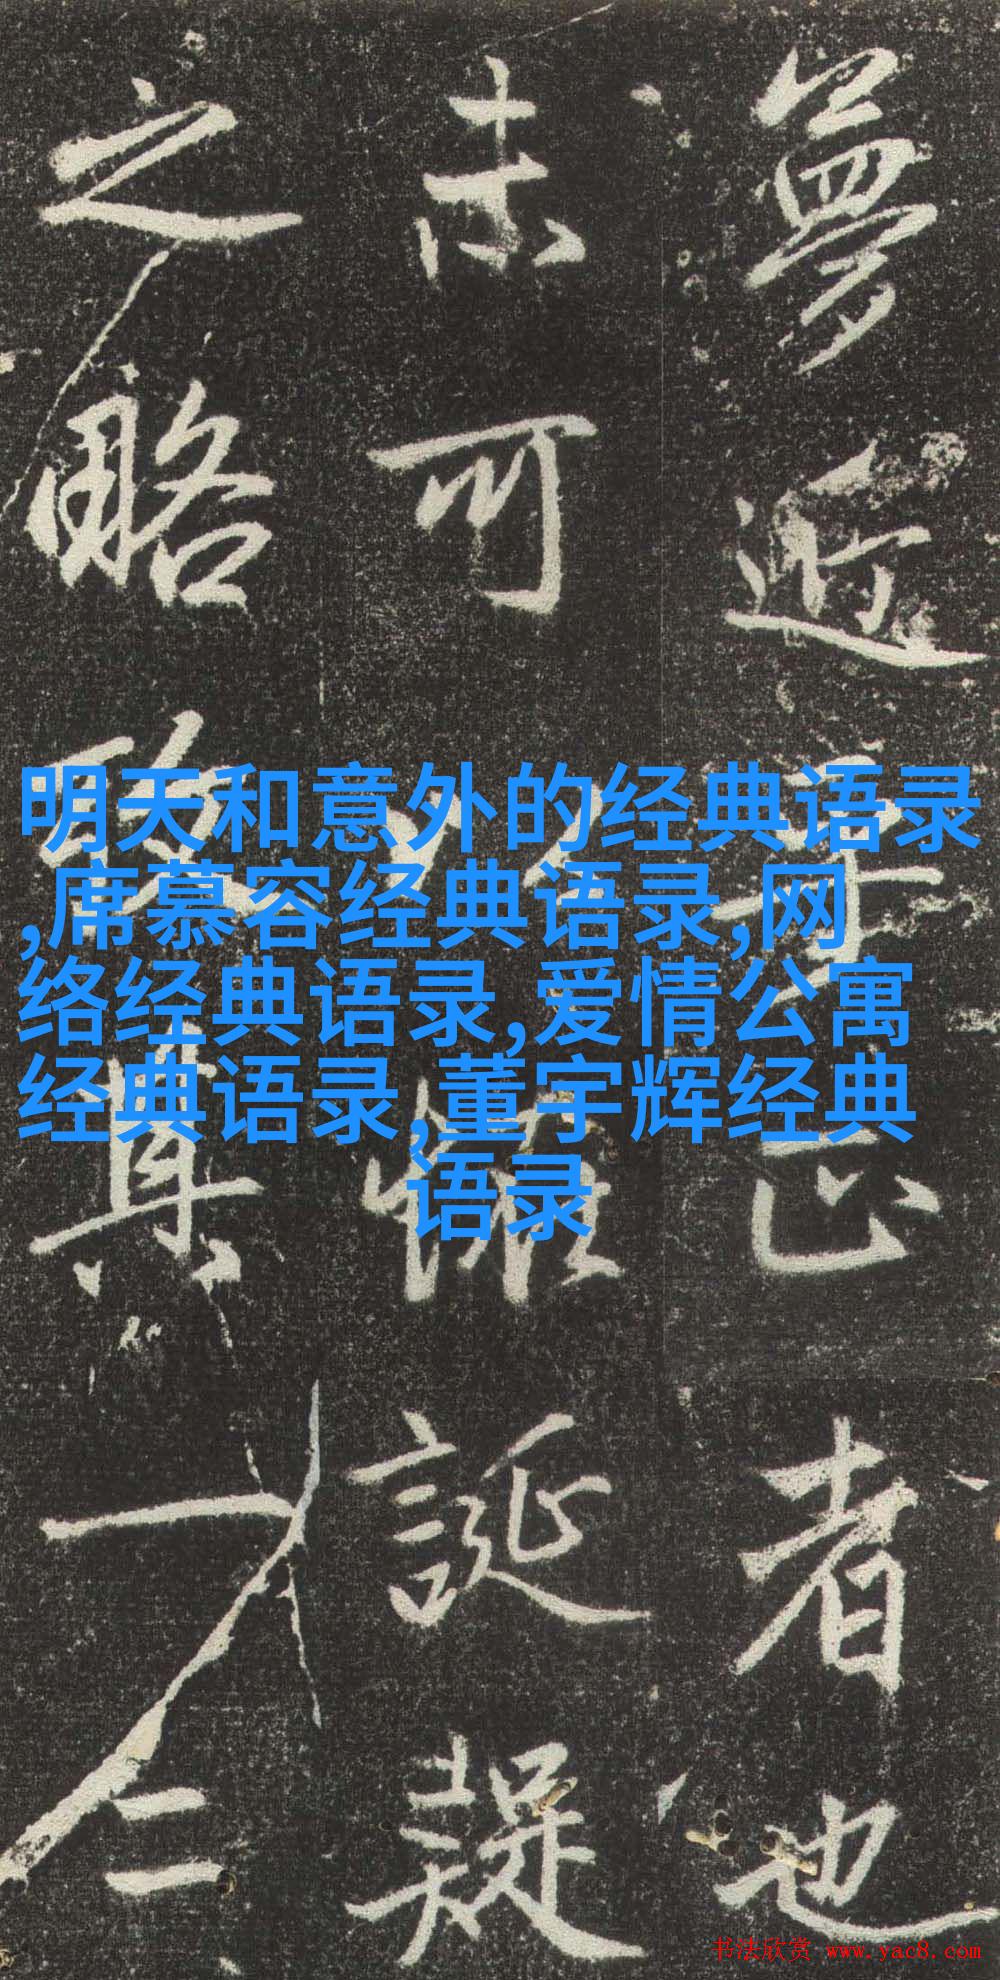 夢近正者也
可以誕疑
之略其一二
明天和意外的经典语录
,席慕容经典语录,网
络经典语录,爱情公寓
经典语录,董宇辉经典
语录
书法欣赏 www.yac8.com